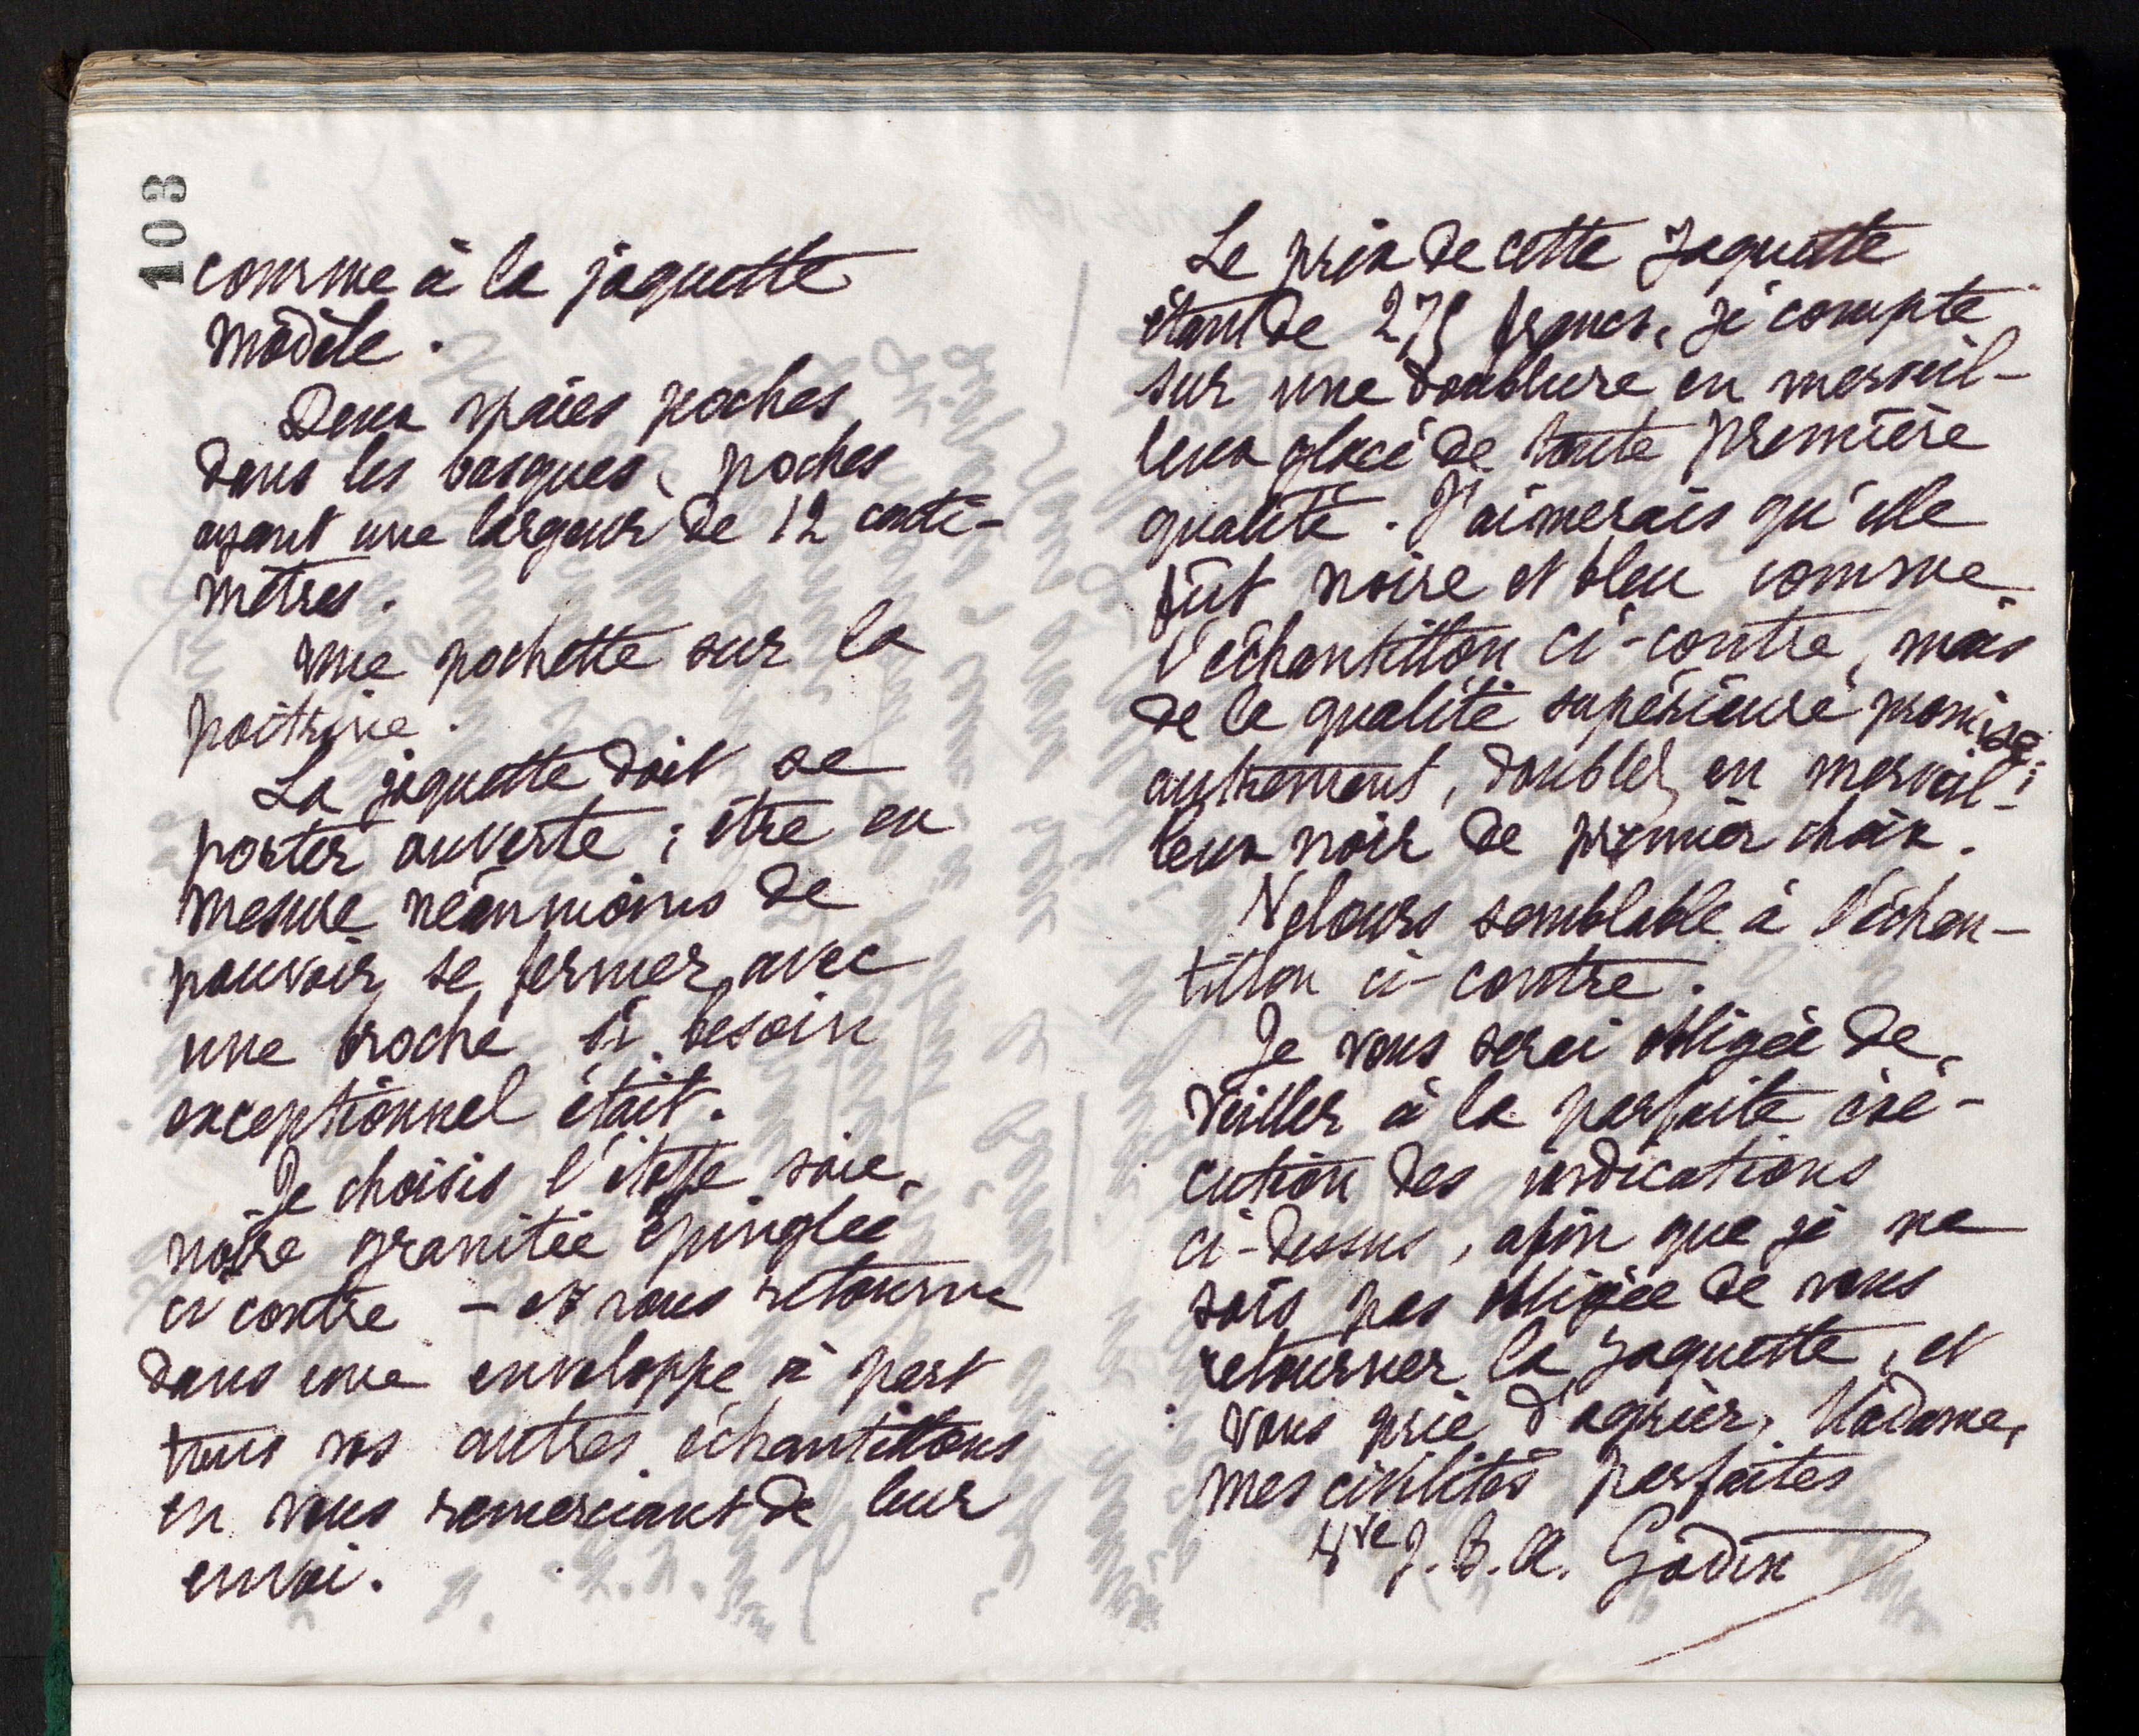 103
comme à la jaquette
modèle.
Deux vraies poches
dans les basques, poches
ayant une largeur de 12 centi-
mètres.
Une pochette sur la
poitrine.
La jaquette doit se
porter ouverte ; être en
mesure néanmoins de
pouvoir se fermer avec
une broche si besoin
exceptionnel était.
Je choisis l'étoffe soie,
noire granitée épinglée
ci contre - et vous retourne
dans une enveloppe à part
tous vos autres échantillons
en vous remerciant de leur
envoi.
Le prix de cette jaquette
étant de 275 francs, je compte
sur une doublure en merveil-
leux glacé de toute première
qualité. J'aimerais qu'elle
fût noire et bleu comme
l'échantillon ci-contre, mais
de la qualité supérieure promise ;
autrement, doublez en merveil-
leux noir de premier choix.
Velours semblable à l'échan-
tillon ci-contre.
Je vous serai obligée de
veiller à la parfaite exé-
cution des indications
ci-dessus, afin que je ne
sois pas obligée de vous
retourner la jaquette, et
vous prie d'agréer, Madame,
mes civilités parfaites
Vve J. B. A. Godin